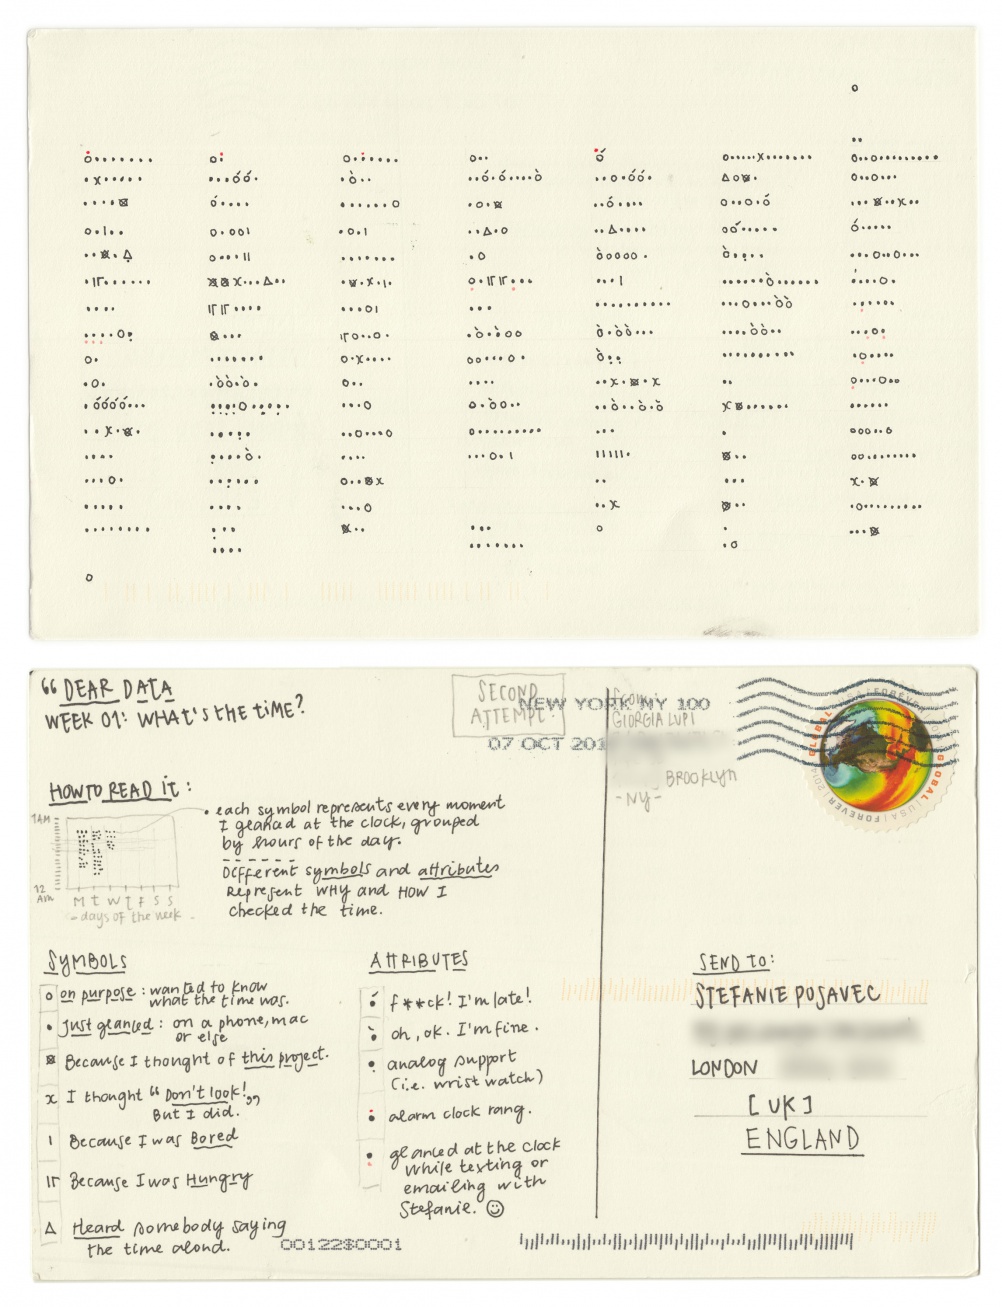 “DEAR DATA
WEEK 01: WHAT'S the tiME?
SECOND
ATTEMPT!
NEW YORK NY 100
07 OCT 201
from:
GIORGIA LUPI
BROOKlyn
-NY-
GLOBAL
FOREVER
GLOBAL | USA | FOREVER | 2014
HOW TO READ it:
1AM
12
AM
M t W t f S S
- days of the week -
• each symbol represents every moment
I glanced at the clock, grouped
by hours of the day.
Different symbols and attributes
Represent WHY and HOW I
checked the time.
SYMBOLS
o on purpose: wanted to know
what the time was.
• Just glanced: on a phone, mac
or else
Because I thought of this project.
x I thought “Don't look!„
But I did.
I Because I was Bored
Because I was Hungry
Δ Heard somebody saying
the time aloud.
AttRIBUTES
f**ck! I'm late!
oh, ok. I'm fine.
analog support
(i.e. wrist watch)
alarm clock rang.
glanced at the clock
while texting or
emailing with
Stefanie. ☺
SEND TO:
STEFANIE POSAVEC
LONDON
[UK]
ENGLAND
00122$0001